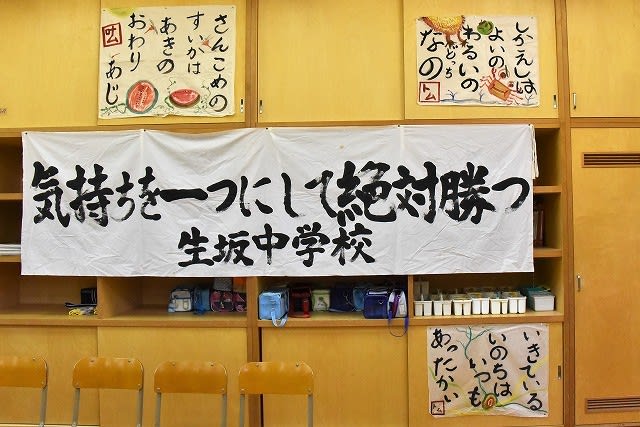 さんこめの
すいかは
あきの
おわり
あじ
しかえしは
よいの
わるいの
どっち
なの
トム
気持ちを一つにして絶対勝つ
生坂中学校
いきている
いのちは
いつも
あったかい
トム